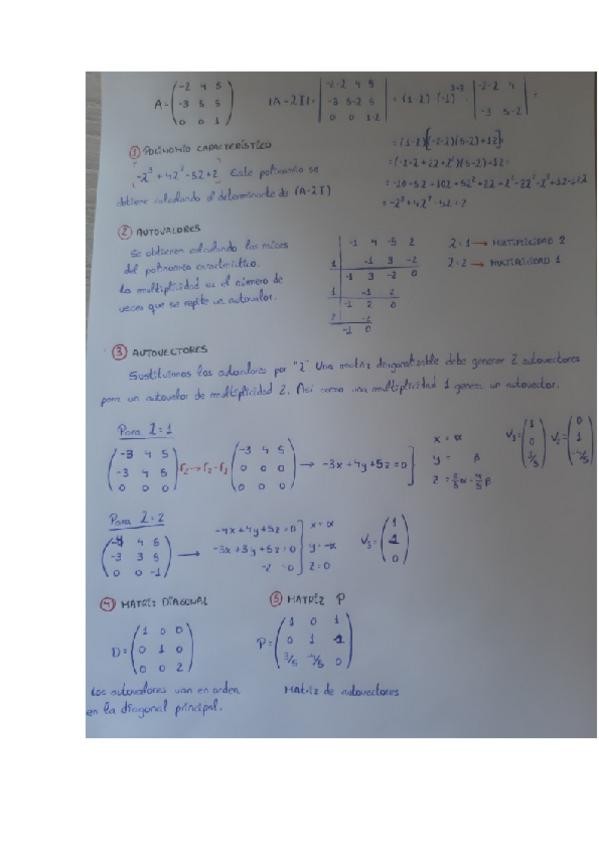 A = (-2 4 5
-3 5 5
0 0 1)
|A-λI| = |-2-λ 4 5
-3 5-λ 5
0 0 1-λ| = (1-λ)·(-1)³⁺³ · |-2-λ 4
-3 5-λ| =
① POLINOMIO CARACTERÍSTICO
-λ³+4λ²-5λ+2 Este polinomio se
obtiene calculando el determinante de (A-λI)
= (1-λ)[(-2-λ)(5-λ)+12]=
= -λ³+4λ²-5λ+2
② AUTOVALORES
Se obtienen calculando las raíces
del polinomio característico.
La multiplicidad es el número de
veces que se repite un autovalor.
-1 4 -5 2
1 -1 3 -2
-1 3 -2 0
1 -1 2
-1 2 0
2 -2
-1 0
λ=1 → MULTIPLICIDAD 2
λ=2 → MULTIPLICIDAD 1
③ AUTOVECTORES
Sustituimos los autovalores por "λ" Una matriz diagonalizable debe generar 2 autovectores
para un autovalor de multiplicidad 2. Así como una multiplicidad 1 genera un autovector.
Para λ=1
(-3 4 5
-3 4 5
0 0 0) r₂→r₂-r₁ (-3 4 5
0 0 0
0 0 0) → -3x+4y+5z=0]
x = α
y = β
z = 3/5α-4/5β
V₁=(1
0
3/5) V₂=(0
1
-4/5)
Para λ=2
(-4 4 5
-3 3 5
0 0 -1) →
-4x+4y+5z=0
-3x+3y+5z=0
-z=0
x=α
z=0
V₃=(1
0)
④ MATRIZ DIAGONAL
D=(1 0 0
0 1 0
0 0 2)
Los autovalores van en orden
en la diagonal principal.
⑤ MATRIZ P
P=(1 0 1
0 1
3/5 -4/5 0)
Matriz de autovectores